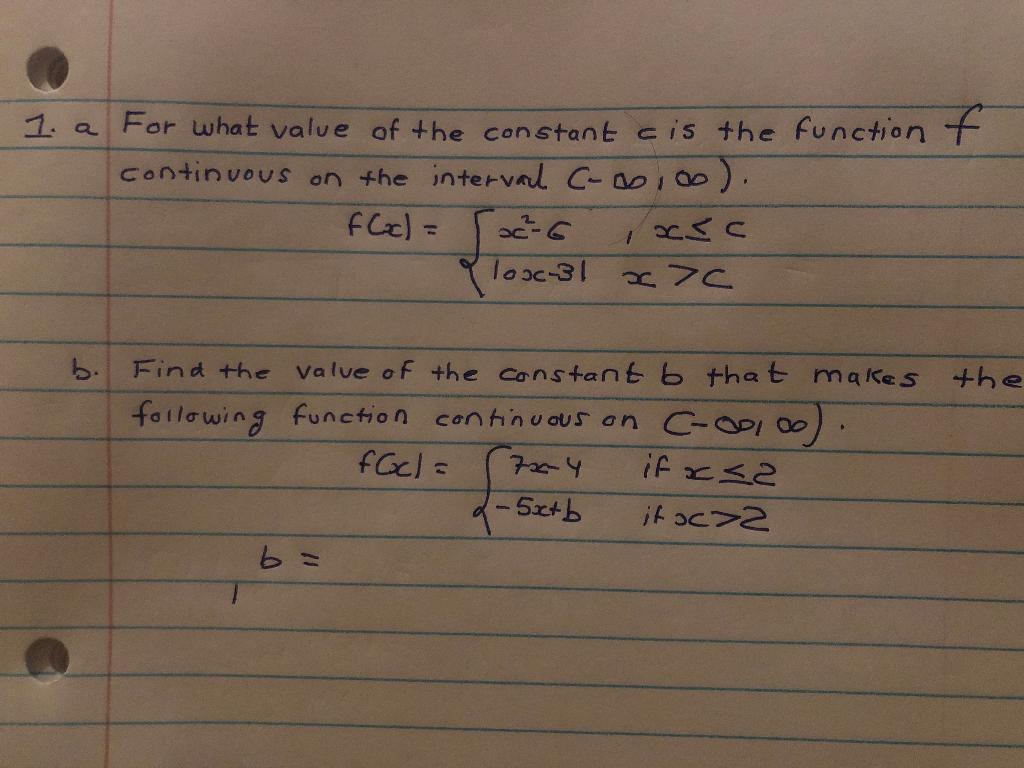 1. a For what value of the constant c is the function f
continuous on the interval (-∞, ∞).
f(x) = { x²-6 , x ≤ c
10x-31 x > c
b. Find the value of the constant b that makes the
following function continuous on (-∞, ∞).
f(x) = { 7x-4 if x ≤ 2
-5x+b if x > 2
b =